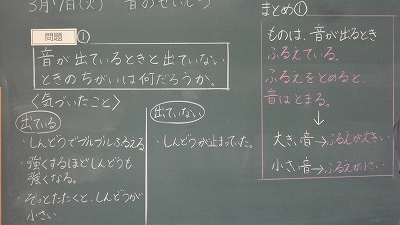 3月17日(火) 音のせいしつ
問題①
音が出ているときと出ていない
ときのちがいは何だろうか。
〈気づいたこと〉
出ている
・しんどうでブルブルふるえる
・強くするほどしんどうも
強くなる。
・そっとたたくと、しんどうが
小さい
出ていない
・しんどうが止まっていた。
まとめ①
ものは、音が出るとき
ふるえている。
ふるえをとめると、
音はとまる。
大きい音→ふるえが大きい
小さい音→ふるえが小さい